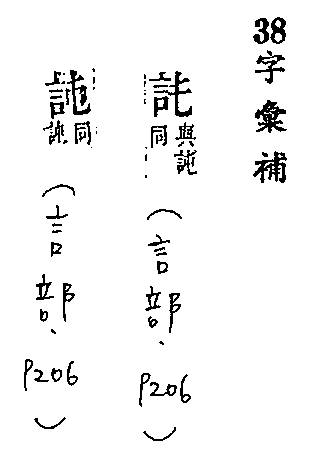 38字彙補
與
同
(言部、P206)
同
(言部、P206)